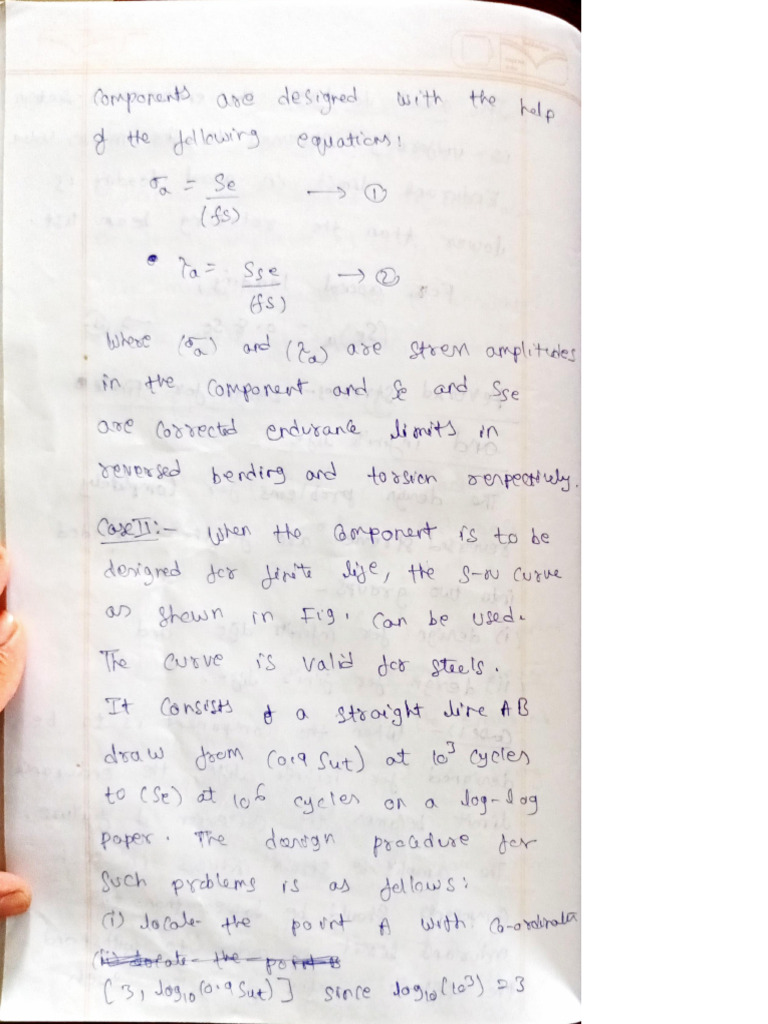 Components are designed with the help
of the following equations:
σa = Se/(fs) → ①
τa = Sse/(fs) → ②
Where (σa) and (τa) are stress amplitudes
in the component and Se and Sse
are corrected endurance limits in
reversed bending and torsion respectively.
Case II:- When the component is to be
designed for finite life, the S-N curve
as shown in Fig. can be used.
The curve is valid for steels.
It consists of a straight line AB
draw from (0.9 Sut) at 10³ cycles
to (Se) at 10⁶ cycles on a log-log
paper. The design procedure for
such problems is as follows:
(i) locate the point A with co-ordinates
(ii) locate the point B
[3, log10 (0.9 Sut)] since log10 (10³) = 3